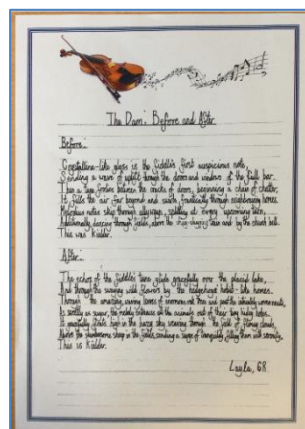 The Dam: Before and After
Before:
Crystalline-like glass is the fiddle's first auspicious note,
Sending a wave of uplift through the doors and windows of the full bar.
Then a tune frolics between the cracks of doors, beginning a chain of chatter,
It fills the air far beyond and such, frantically through neighbouring homes.
Melodious notes skip through alleyways, settling at every upcoming
Additionally dancing through fields, above the and by the church bell.
This was Kielder.
After:
The echos of the fiddle's tune glide gracefully over the placid lake,
And through the swaying wild flowers by the hedgehogs' habitat-like homes.
Through the amazing, waving leaves of enormous oak trees and past the
As swiftly as sugar, the melody entices the animals out of their
It gracefully floats, high in the weaving through the fluffy clouds,
Above the sheep in the fields, sending a surge of tranquility, filling them with serenity.
This is Kielder.
Layla, 6R